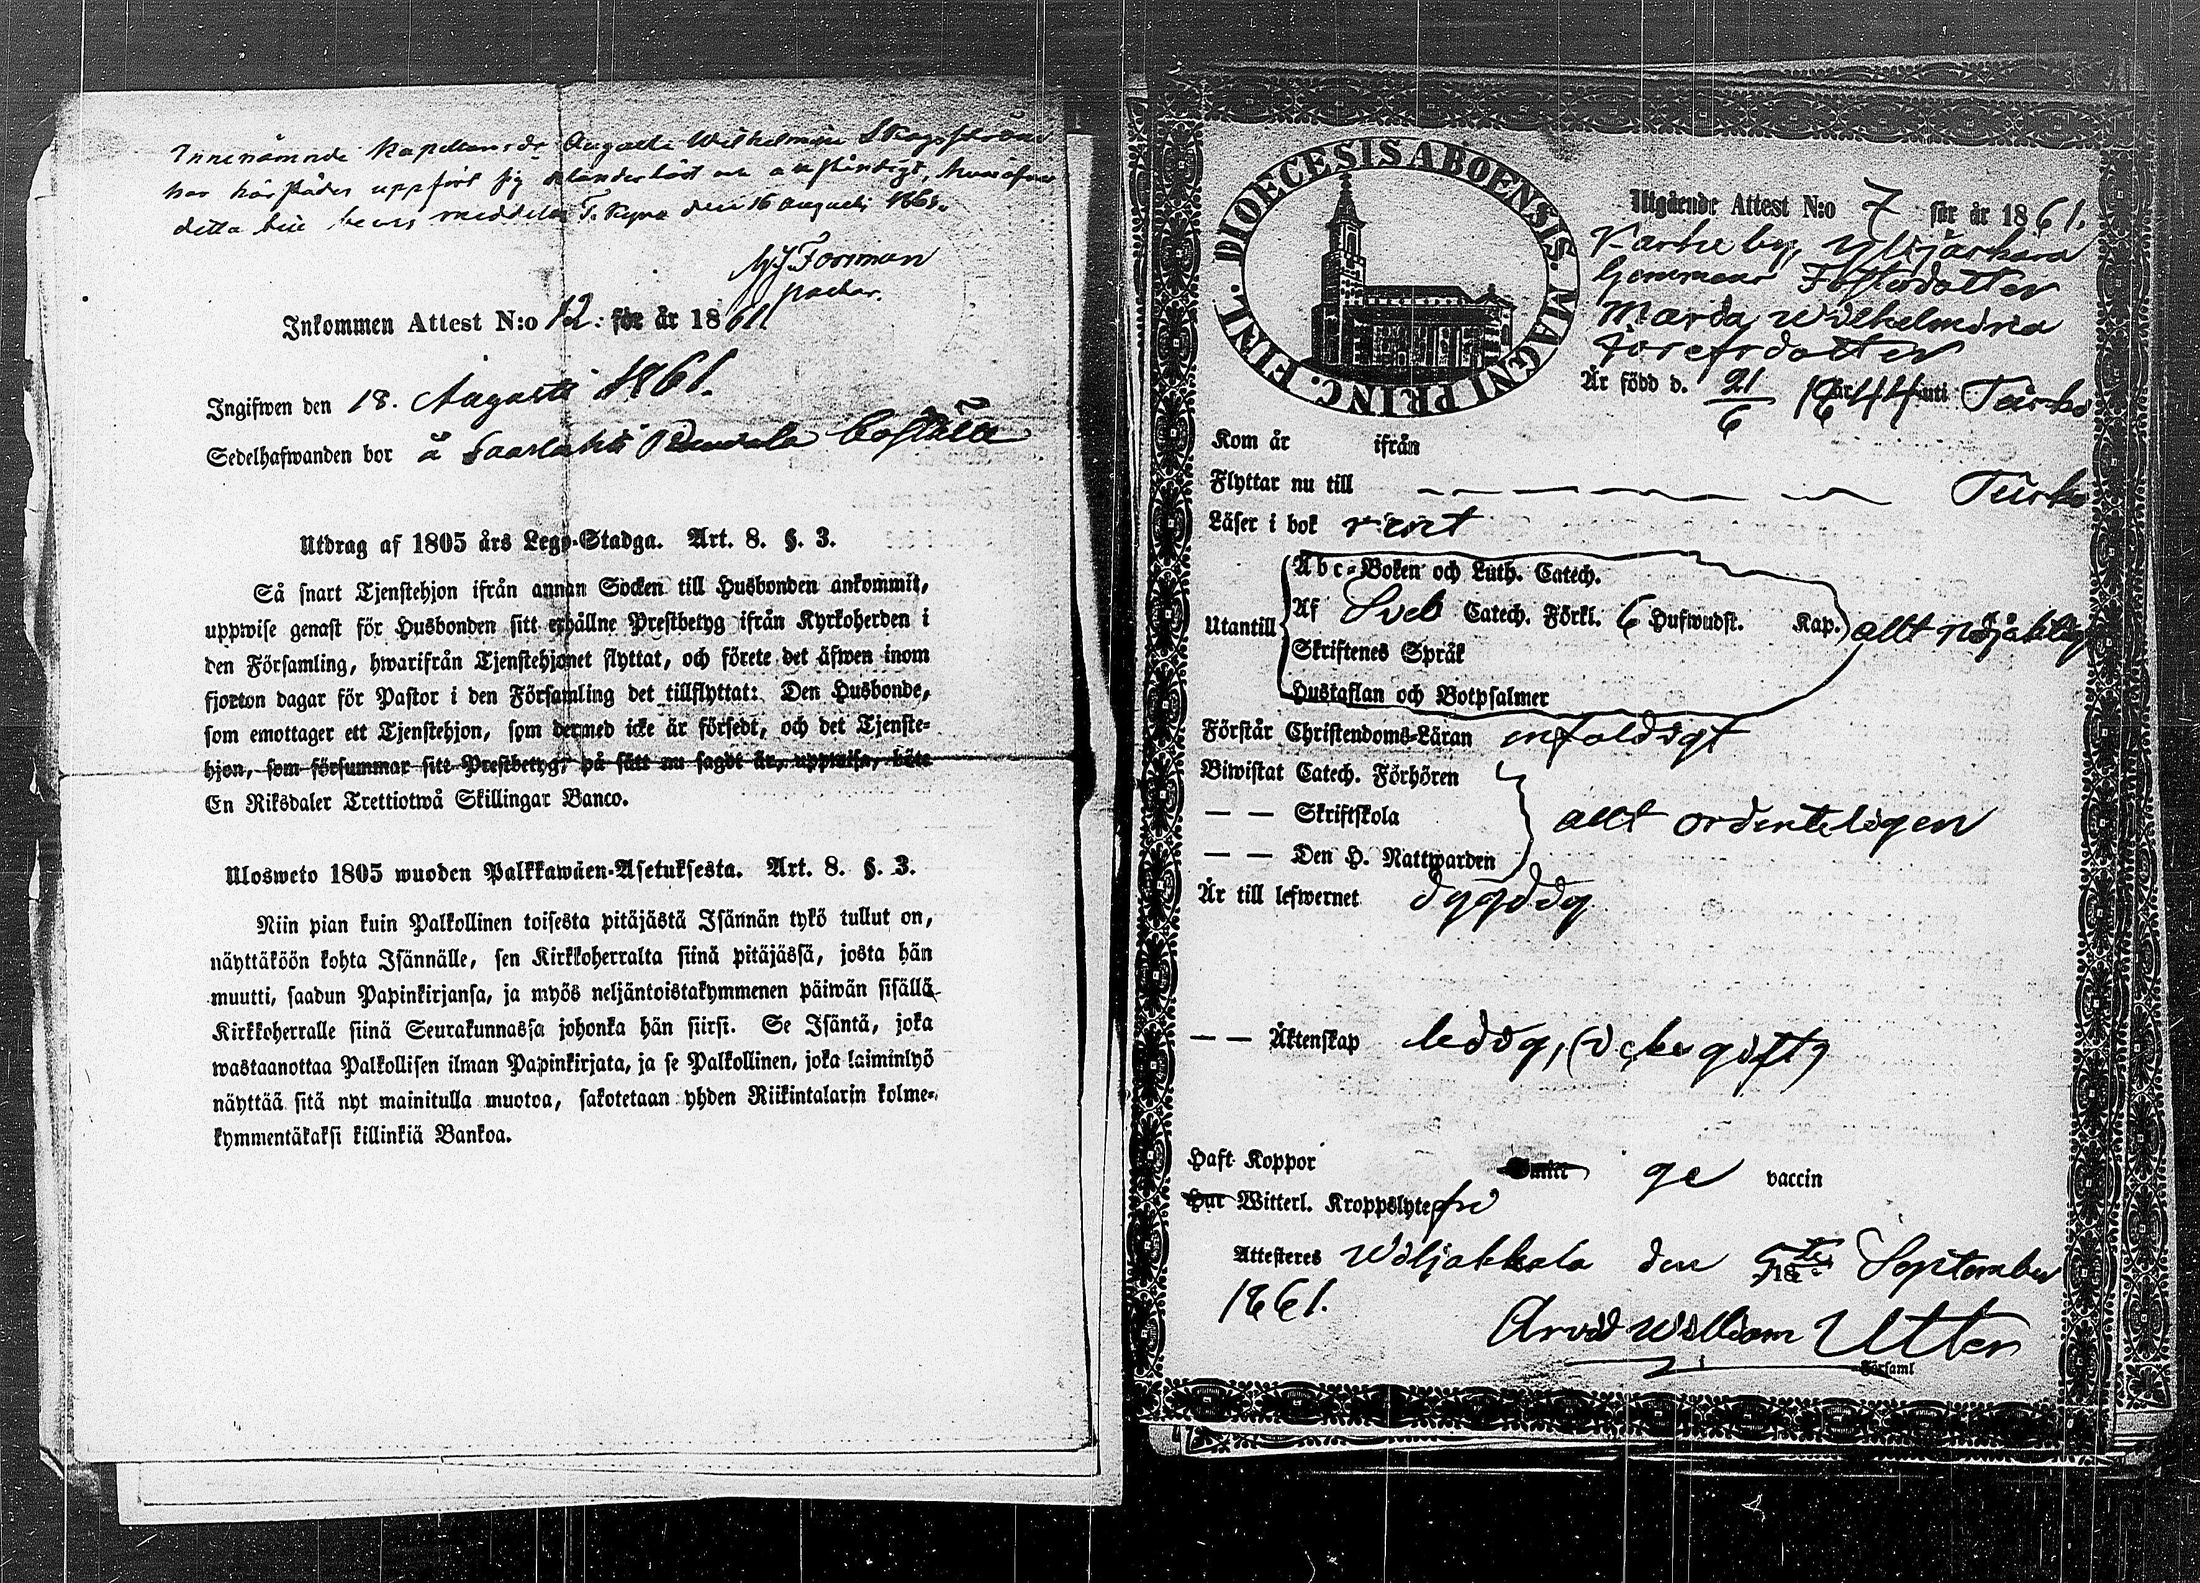 Innenämnde Augusta Wilhelmina
har härstädes uppfört sig och anständigt, hwaröfwer
detta till bewis meddelas T. Kyro den 16 Augusti 1861.
Forsman
pastor.
Inkommen Attest N:o 12. för år 1861
Ingifwen den 18. Augusti 1861.
Sedelhafwanden bor å Boställe
Utdrag af 1805 års Lego-Stadga. Art. 8. §. 3.
Så snart Tjenstehjon ifrån annan Socken till Husbonden ankommit,
uppwise genast för Husbonden sitt erhållne Prestbetyg ifrån Kyrkoherden i
den Församling, hwarifrån Tjenstehjonet flyttat, och förete det äfwen inom
fjorton dagar för Pastor i den Församling det tillflyttat: Den Husbonde,
som emottager ett Tjenstehjon, som dermed icke är försedt, och det Tjenste-
hjon, som försummar sitt Prestbetyg, på sätt nu sagdt är, uppwisa, böte
En Riksdaler Trettiotwå Skillingar Banco.
Ulosweto 1805 wuoden Palkkawäen-Asetuksesta. Art. 8. §. 3.
Niin pian kuin Palkollinen toisesta pitäjästä Isännän tykö tullut on,
näyttäköön kohta Isännälle, sen Kirkkoherralta siinä pitäjässä, josta hän
muutti, saadun Papinkirjansa, ja myös neljäntoistakymmenen päiwän sisällä
Kirkkoherralle siinä Seurakunnassa johonka hän siirsi. Se Isäntä, joka
wastaanottaa Palkollisen ilman Papinkirjata, ja se Palkollinen, joka laiminlyö
näyttää sitä nyt mainitulla muotoa, sakotetaan yhden Riikintalarin kolme-
kymmentäkaksi killinkiä Bankoa.
DIOECESIS ABOENSIS. MAGNI PRINC. FINL.
Utgående Attest N:o 7 för år 1861.
by, Ylisjärhara
hemmans Fosterdotter
Maria Wilhelmina
Josefsdotter
Är född d. 21/6 1844 uti Turko
Kom år ifrån
Flyttar nu till — — — — — Turko
Läser i bok rent
Utantill
Abc-Boken och Luth. Catech.
Af Sveb Catech. Förkl. 6 Hufwudst. Kap.
Skriftenes Språk
Hustaflan och Botpsalmer
allt nöjaktligt
Förstår Christendoms-Läran enfaldigt
Biwistat Catech. Förhören
— — Skriftskola
— — Den H. Nattwarden
allt ordenteligen
Är till lefwernet dygdig
— — Äktenskap ledig, (icke gift)
Haft Koppor vaccin
Har Witterl. Kroppslyte fri
Attesteres Wiljakkala den 5te 18 September
1861.
Arvid William Utter
i Församl